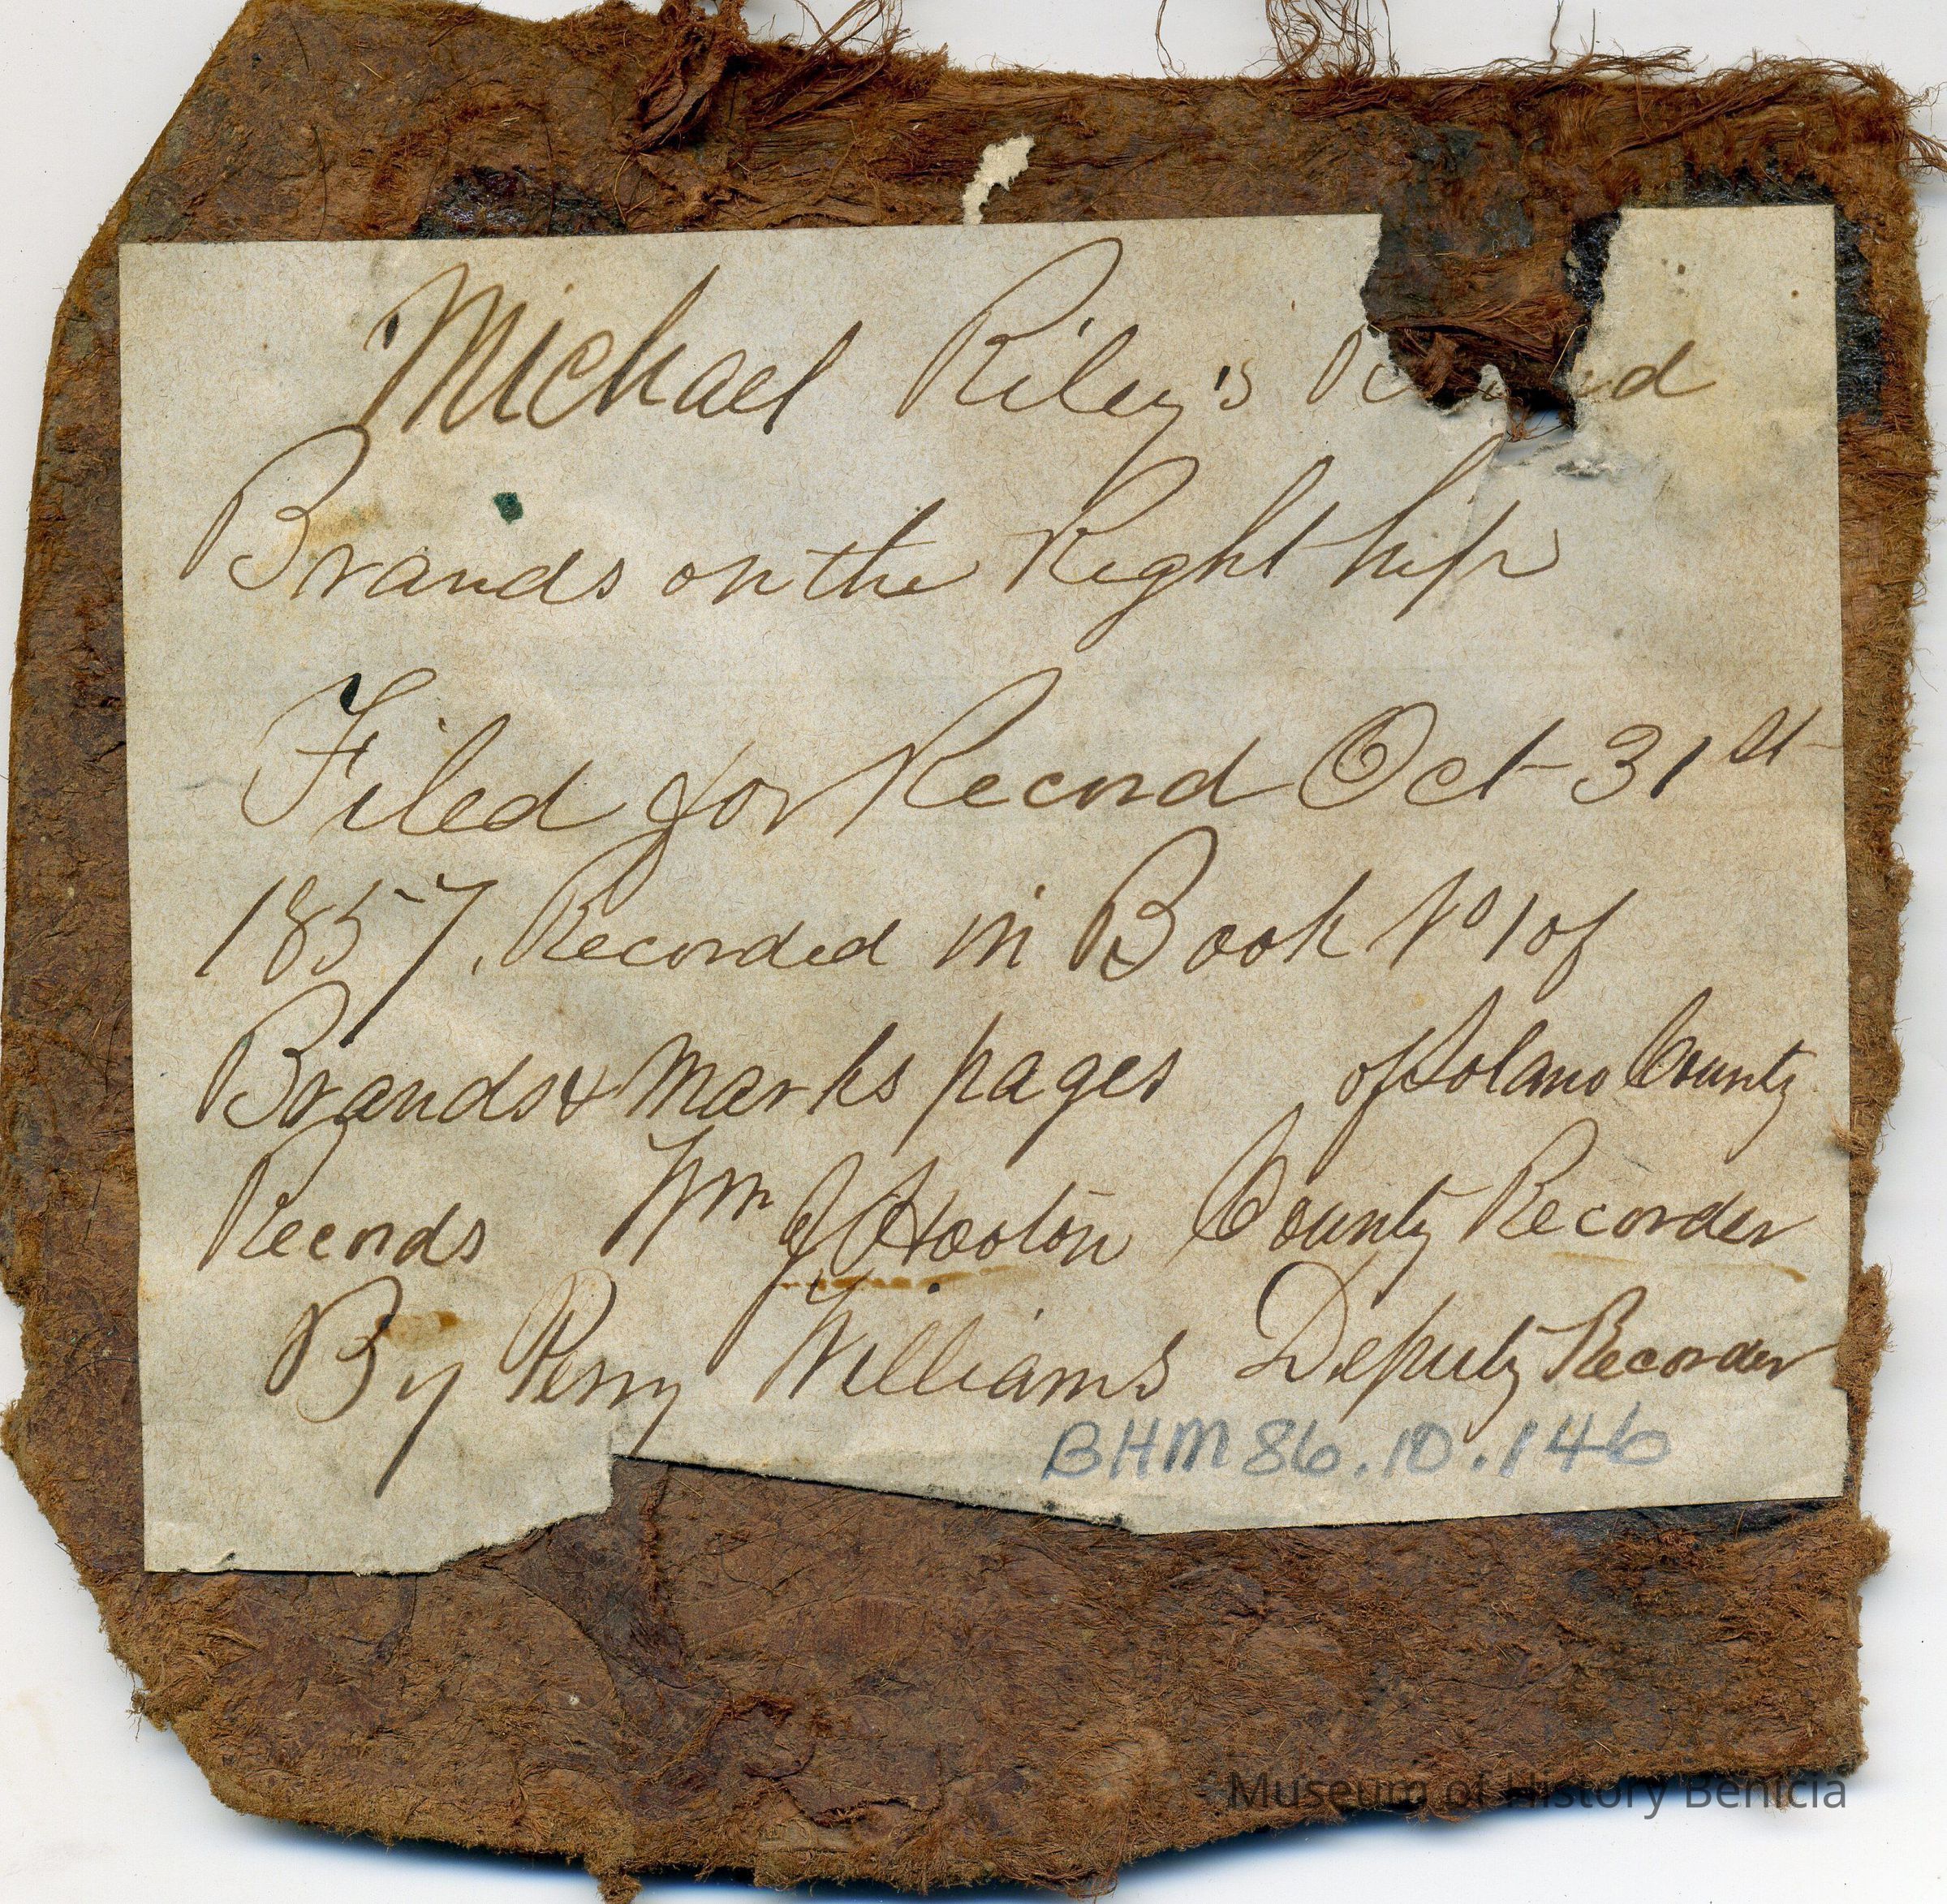 Michael Riley's
Brands on the Right hip
Filed for Record Oct 31st
1857. Recorded in Book No 1 of
Brands & Marks pages of Solano County
Records Wm J Hooton County Recorder
By Perry Williams Deputy Recorder
BHM 86.10.146
Museum of History Benicia